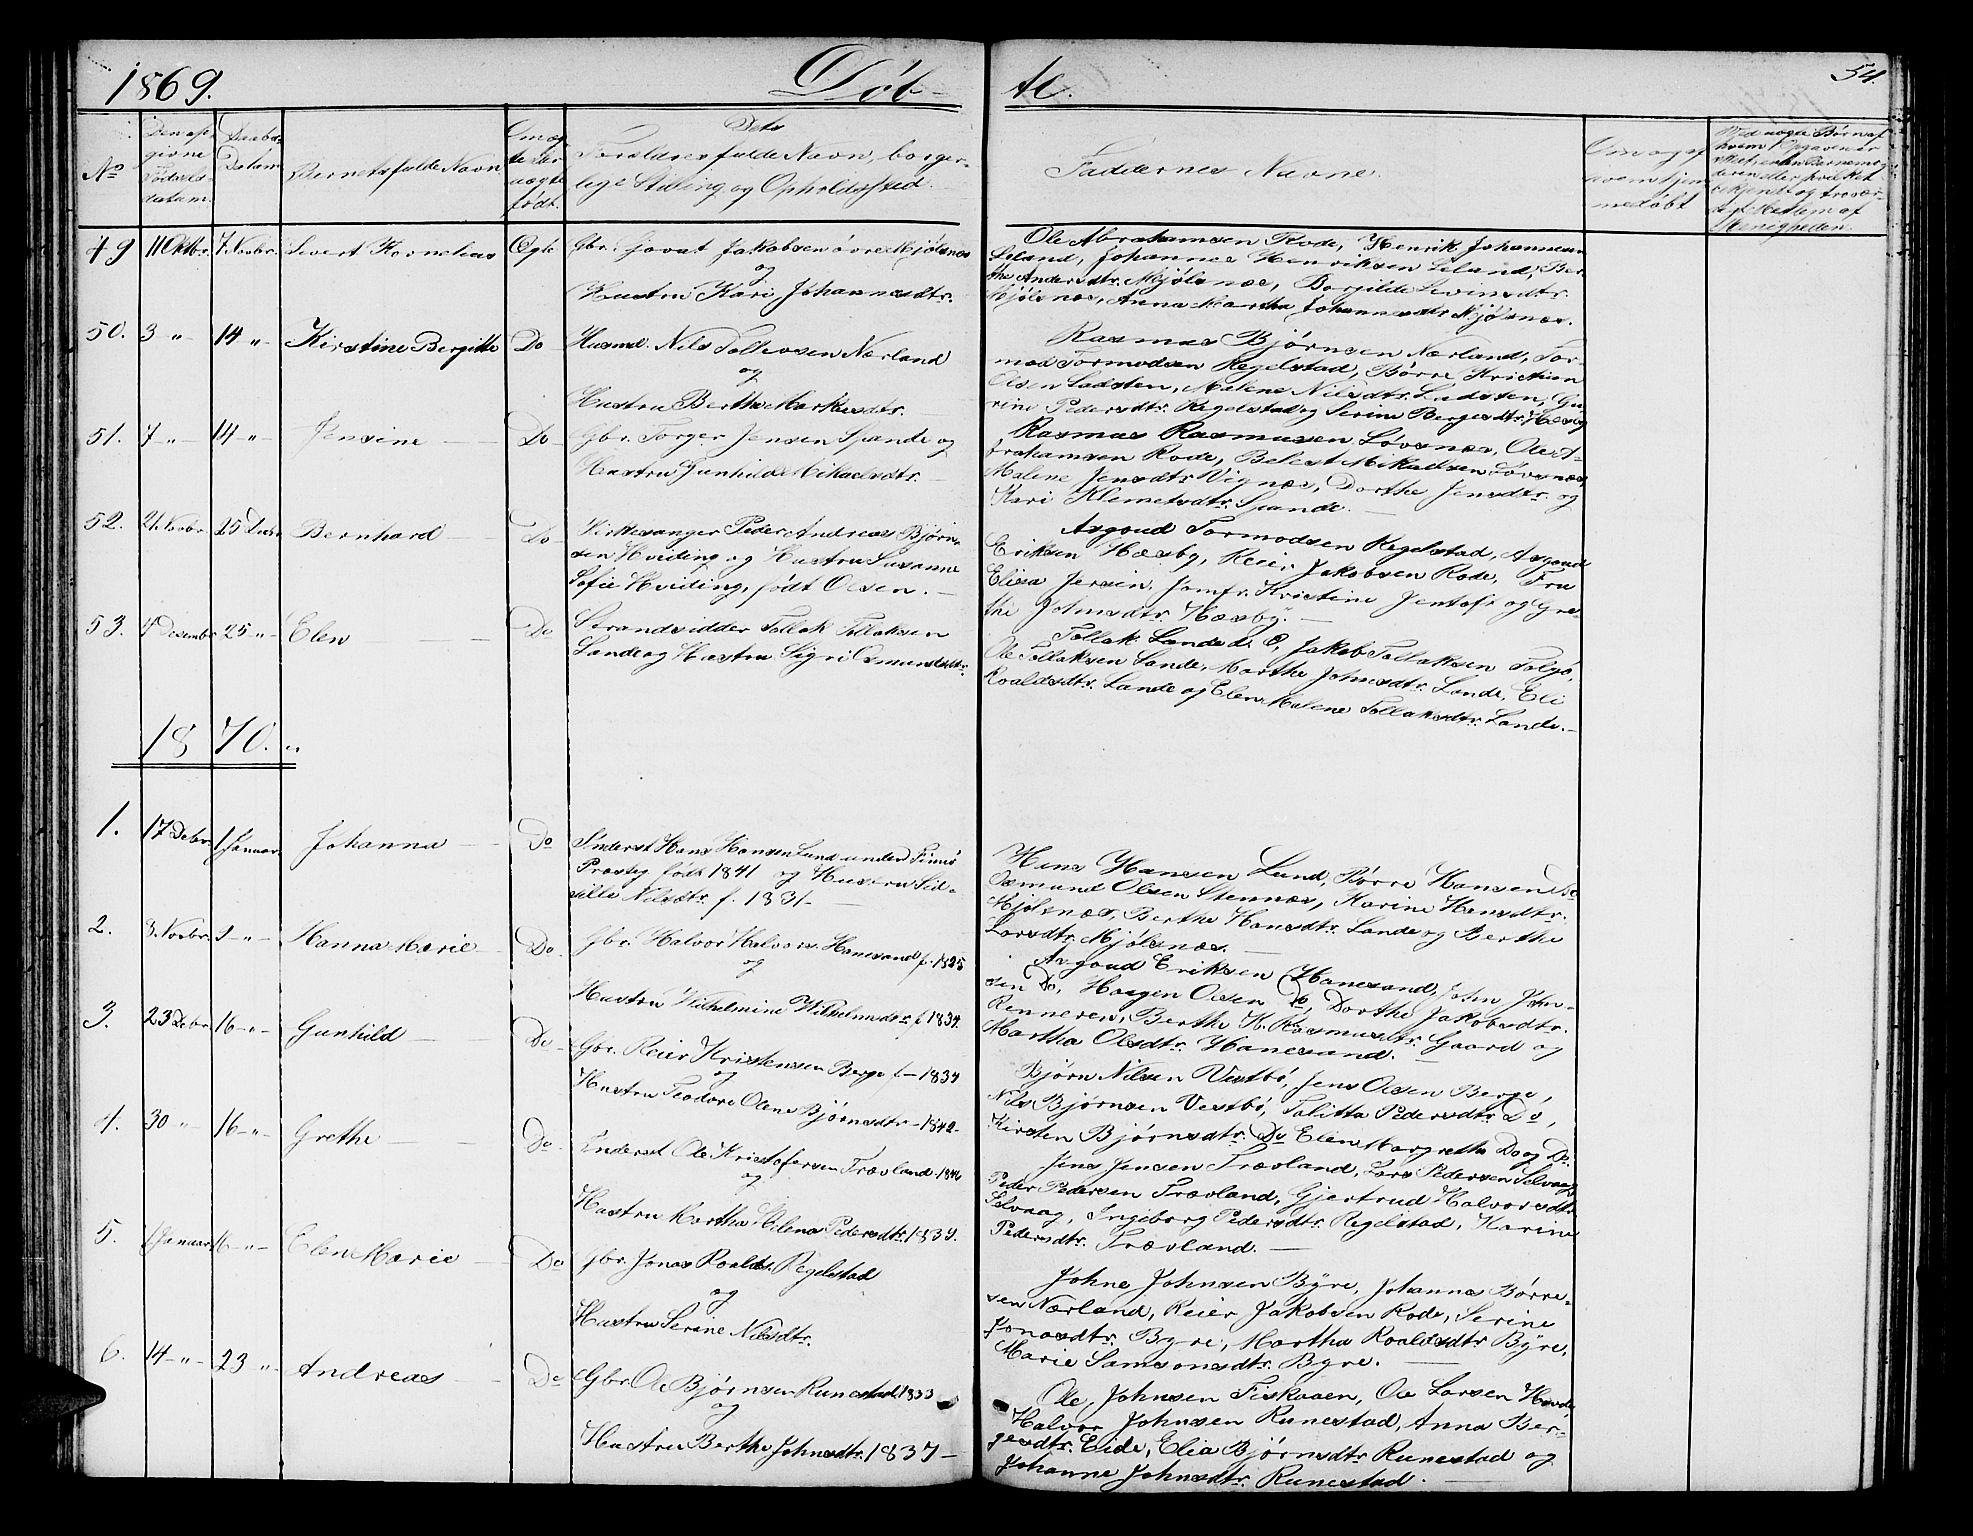 1869.
Døb-
te.
54.
No
Den opgivne Fødselsdatum.
Daabs-Datum
Barnets fulde Navn
Om ægte eller uægte født.
Dets Forældres fulde Navn, borgerlige Stilling og Opholdssted.
Faddernes Navne.
49 11 Oktbr. 7. Novbr. Sivert Kornelius Ægte Gbr. Govat Jakobsen øvre Mjølsnes
og
Hustru Kari Johannesdtr.
Ole Abrahamsen Rode, Henrik Johannessen
Leland, Johannes Henriksen Leland, Ber-
the Andersdtr. Mjølsnes, Borgilde Sivinsdtr.
Mjølsnes, Anna Martha Johannesdtr. Mjølsnes.
50. 3 -"- 14 -"- Kirstine Bergitte Do Husmd. Nils Tollevsen Nærland
og
Hustru Berthe Markusdtr.
Rasmus Bjørnsen Nærland, Tor-
mod Tormodsen Regelstad, Børre Kristian
Olsen Ladsten, Malene Nilsdtr. Ladsten, Gu-
rine Pedersdtr. Regelstad og Serine Bergesdtr. Hæsby
51. 7 -"- 14 -"- Jensine Do Gbr. Torger Jensen Spande og
Hustru Gunhilde Mikaelsdtr.
Rasmus Rasmussen Løvsnes, Ole A-
brahamsen Rode, Belest Mikaelsen Løvsnes,
Malene Jensdtr. Vignes, Dorthe Jensdtr. og
Kari Klemetsdtr. Spande.
52. 21. Novbr. 25 Decbr. Bernhard Do Kirkesanger Peder Andreas Bjørn-
sen Hviding og Hustru Susanne
Sofie Hviding, født Olsen.
Asgoud Tormodsen Regelstad, Asgoud
Eriksen Hæsby, Reier Jakobsen Rode, Fru
Elisa Jersin, Jomfr. Kristine Jentoft og Gre-
the Johnsdtr. Hæsby.
53. 4 Desembr. 25 -"- Elen Do Strandsidder Tollak Tollaksen
Lande og Hustru Sigri Osmundsdtr.
Tollak Lande d. Æ, Jakob Tollaksen Talgø,
Ole Tollaksen Lande, Marthe Johnsdtr. Lande, Eli
Roaldsdtr. Lande og Elen Malene Tollaksdtr. Lande.
1870.
1. 17 Debr. 1 Januar. Johanna Do Inderst Hans Hansen Lund under Finnø
Præstg. født 1841 og Hustru Sid-
sille Nilsdtr. f. 1831
Hans Hansen Lund, Børre Hansen Do
Osmund Olsen Stennes, Karine Hansdtr.
Mjølsnes, Berthe Hansdtr. Lande og Berthe
Larsdtr. Mjølsnes.
2. 3. Novbr. 1 -"- Hanna Marie Do Gbr. Halvor Halvors. Hanesand f. 1825
og
Hustru Wilhelmine Wilhelmsdtr. f. 1834.
Asgoud Eriksen Hanesand, John John-
sen Do, Haagen Olsen Do, Dorthe Jakobsdtr.
Renneren, Berthe K. Rasmusdtr. Gaard og
Martha Olsdtr. Hanesand.
3. 23 Debr. 16 -"- Gunhild Do Gbr. Reier Kristensen Berge f. 1834
og
Hustru Teodore Olene Bjørnsdtr. 1842.
Bjørn Nilsen Vestbø, Jens Olsen Berge,
Nils Bjørnsen Vestbø, Talitta Pedersdtr. Do,
Kirsten Bjørnsdtr. Do Elen Margrethe Do og Do.
4. 30 -"- 16 -"- Grethe Do Inderst Ole Kristofersen Trævland. 1846
og
Hustru Martha Helena Pedersdtr. 1839.
Jens Jensen Trævland, Lars Pedersen Selvaag,
Peder Pedersen Trævland, Gjertrud Halvorsdtr.
Selvaag, Ingeborg Pedersdtr. Regelstad, Karine
Pedersdtr. Trævland.
5. 1 Januar 16 -"- Elen Marie Do Gbr. Jonas Roalds. Regelstad
og
Hustru Serine Nilsdtr.
Johne Johnsen Byre, Johannes Børre-
sen Nærland, Reier Jakobsen Rode, Serine
Jonasdtr. Byre, Martha Roaldsdtr. Byre,
Marie Samsonsdtr. Byre.
6. 14 -"- 23 -"- Andreas Do Gbr. Ole Bjørnsen Runestad. 1833
og
Hustru Berthe Johnsdtr. 1837
Ole Johnsen Fiskaaen, Ole Larsen Hovde,
Halvor Johnsen Runestad, Anna Ber-
gesdtr. Eide, Elia Bjørnsdtr. Runestad og
Johanne Johnsdtr. Runestad.